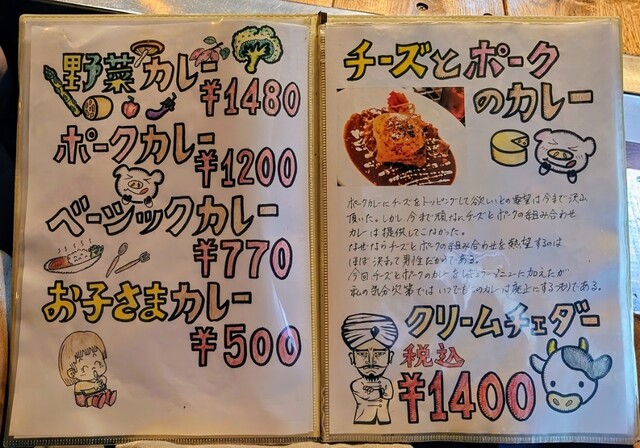 野菜カレー
¥1480
ポークカレー
¥1200
ベーシックカレー
¥770
お子さまカレー
¥500
チーズとポーク
のカレー
ポークカレーにチーズをトッピングして欲しいとの要望は今まで沢山
頂いた。しかし、今まで頑なにチーズとポークの組み合わせ
カレーは提供してこなかった。
なぜならチーズとポークの組み合わせを熱望するのは
ほぼ決まって男性だからである。
今回チーズとポークのカレーをメニューに加えたが
私の気分次第ではいつでもこのカレーは廃止にするつもりである。
クリームチェダー
税込
¥1400